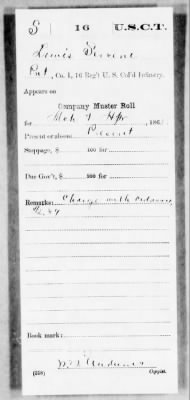 S | 16 | U.S.C.T.
Lewis
Pvt, Co. I, 16 Reg't U. S. Col'd Infantry.
Appears on
Company Muster Roll
for Mch & Apr, 186
Present or absent Present
Stoppage, $ 100 for
Due Gov't, $ 100 for
Remarks: Charge with ordnance
Book mark:
(358) Copyist.